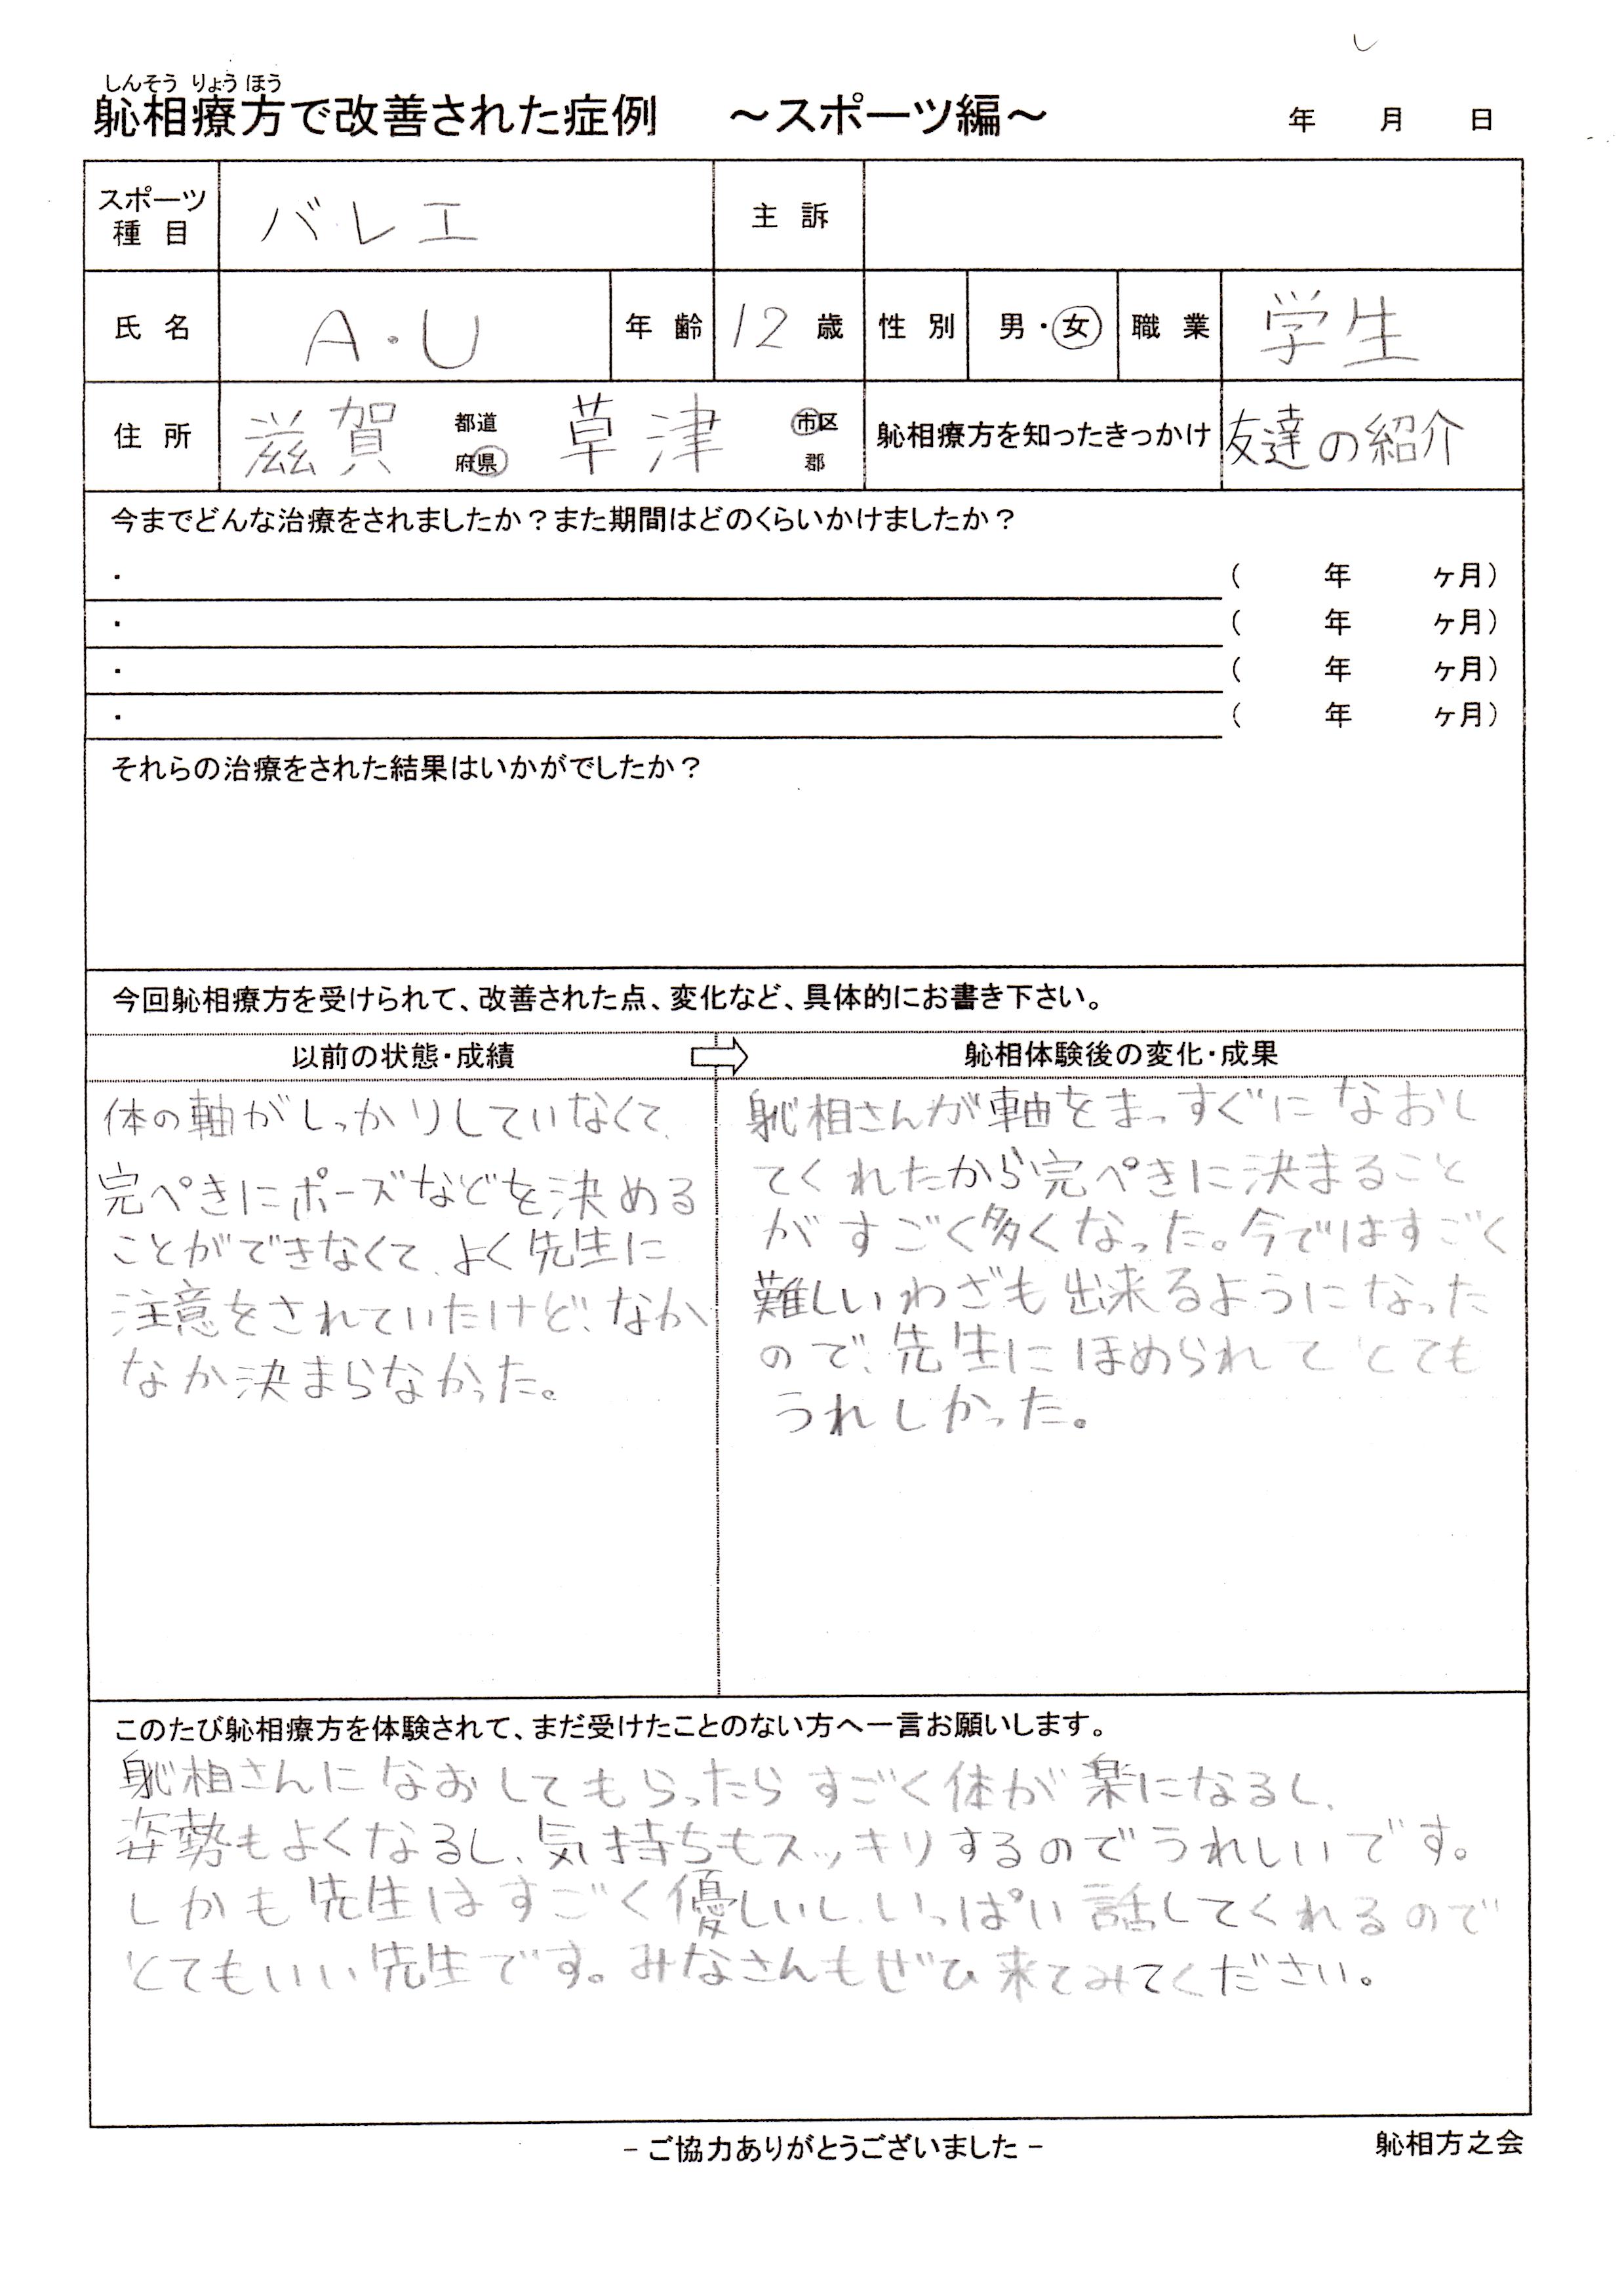 しんそう りょう ほう
躰相療方で改善された症例 ～スポーツ編～ 年 月 日
スポーツ種目 バレエ 主訴
氏名 A・U 年齢 12歳 性別 男・女 職業 学生
住所 滋賀 都道府県 草津 市区郡 躰相療方を知ったきっかけ 友達の紹介
今までどんな治療をされましたか？また期間はどのくらいかけましたか？
・ （ 年 ヶ月）
・ （ 年 ヶ月）
・ （ 年 ヶ月）
・ （ 年 ヶ月）
それらの治療をされた結果はいかがでしたか？
今回躰相療方を受けられて、改善された点、変化など、具体的にお書き下さい。
以前の状態・成績
体の軸がしっかりしていなくて、
完ぺきにポーズなどを決める
ことができなくて、よく先生に
注意をされていたけど、なか
なか決まらなかった。
躰相体験後の変化・成果
躰相さんが軸をまっすぐになおし
てくれたから完ぺきに決まること
がすごく多くなった。今ではすごく
難しいわざも出来るようになった
ので、先生にほめられてとても
うれしかった。
このたび躰相療方を体験されて、まだ受けたことのない方へ一言お願いします。
躰相さんになおしてもらったらすごく体が楽になるし、
姿勢もよくなるし、気持ちもスッキリするのでうれしいです。
しかも先生はすごく優しいし、いっぱい話してくれるので
とてもいい先生です。みなさんもぜひ来てみてください。
－ご協力ありがとうございました－ 躰相方之会